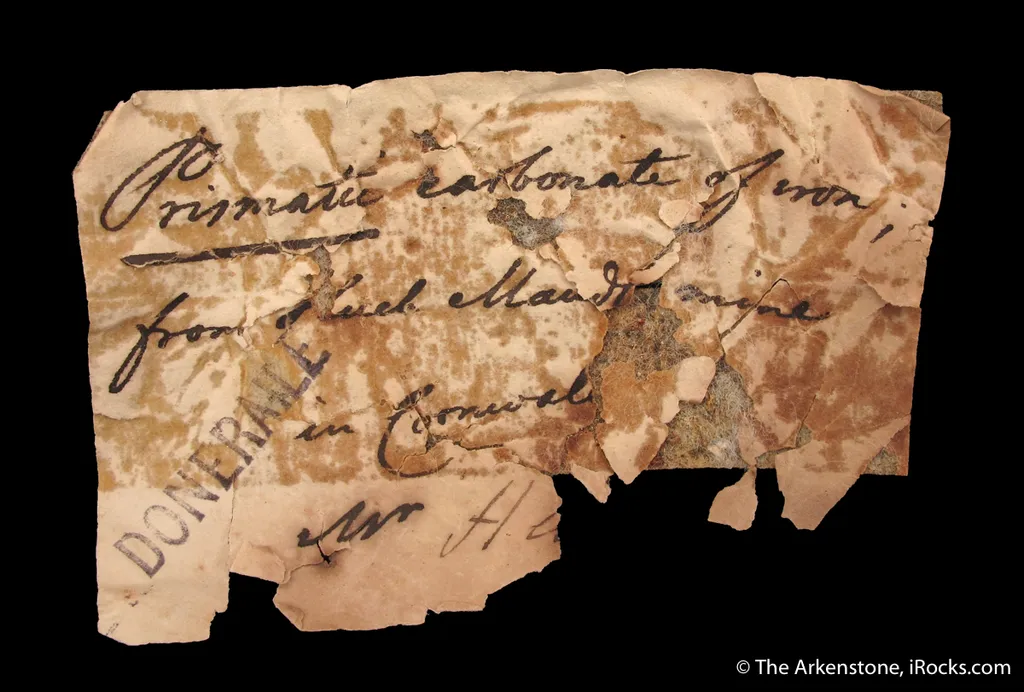 Prismatic carbonate of iron;
from Maudlin mine
in Cornwall
Mr He
DONERAILE
© The Arkenstone, iRocks.com